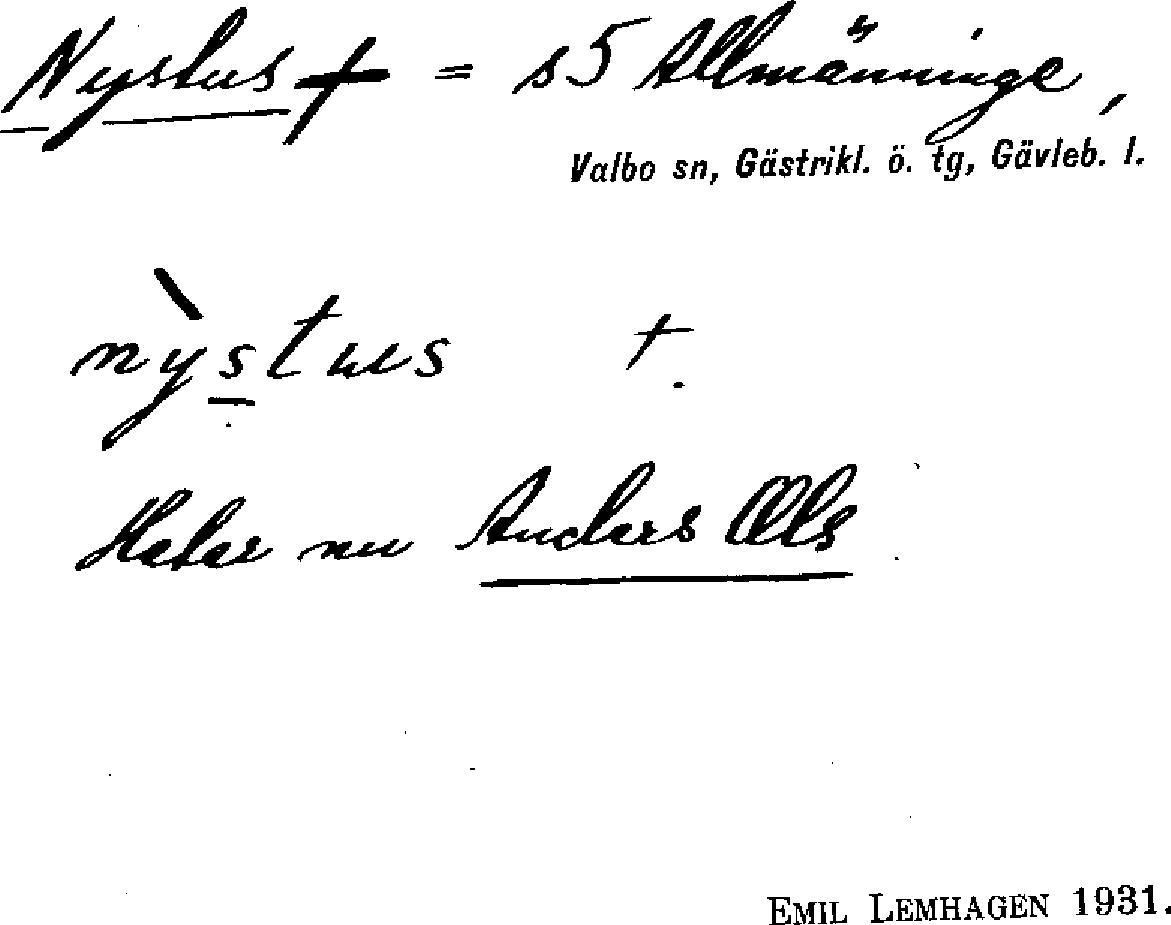 Nystus † = s5 Allmänninge,
Valbo sn, Gästrikl. ö. tg, Gävleb. l.
nỳstus †.
Hetar nu Anders Ols
EMIL LEMHAGEN 1931.